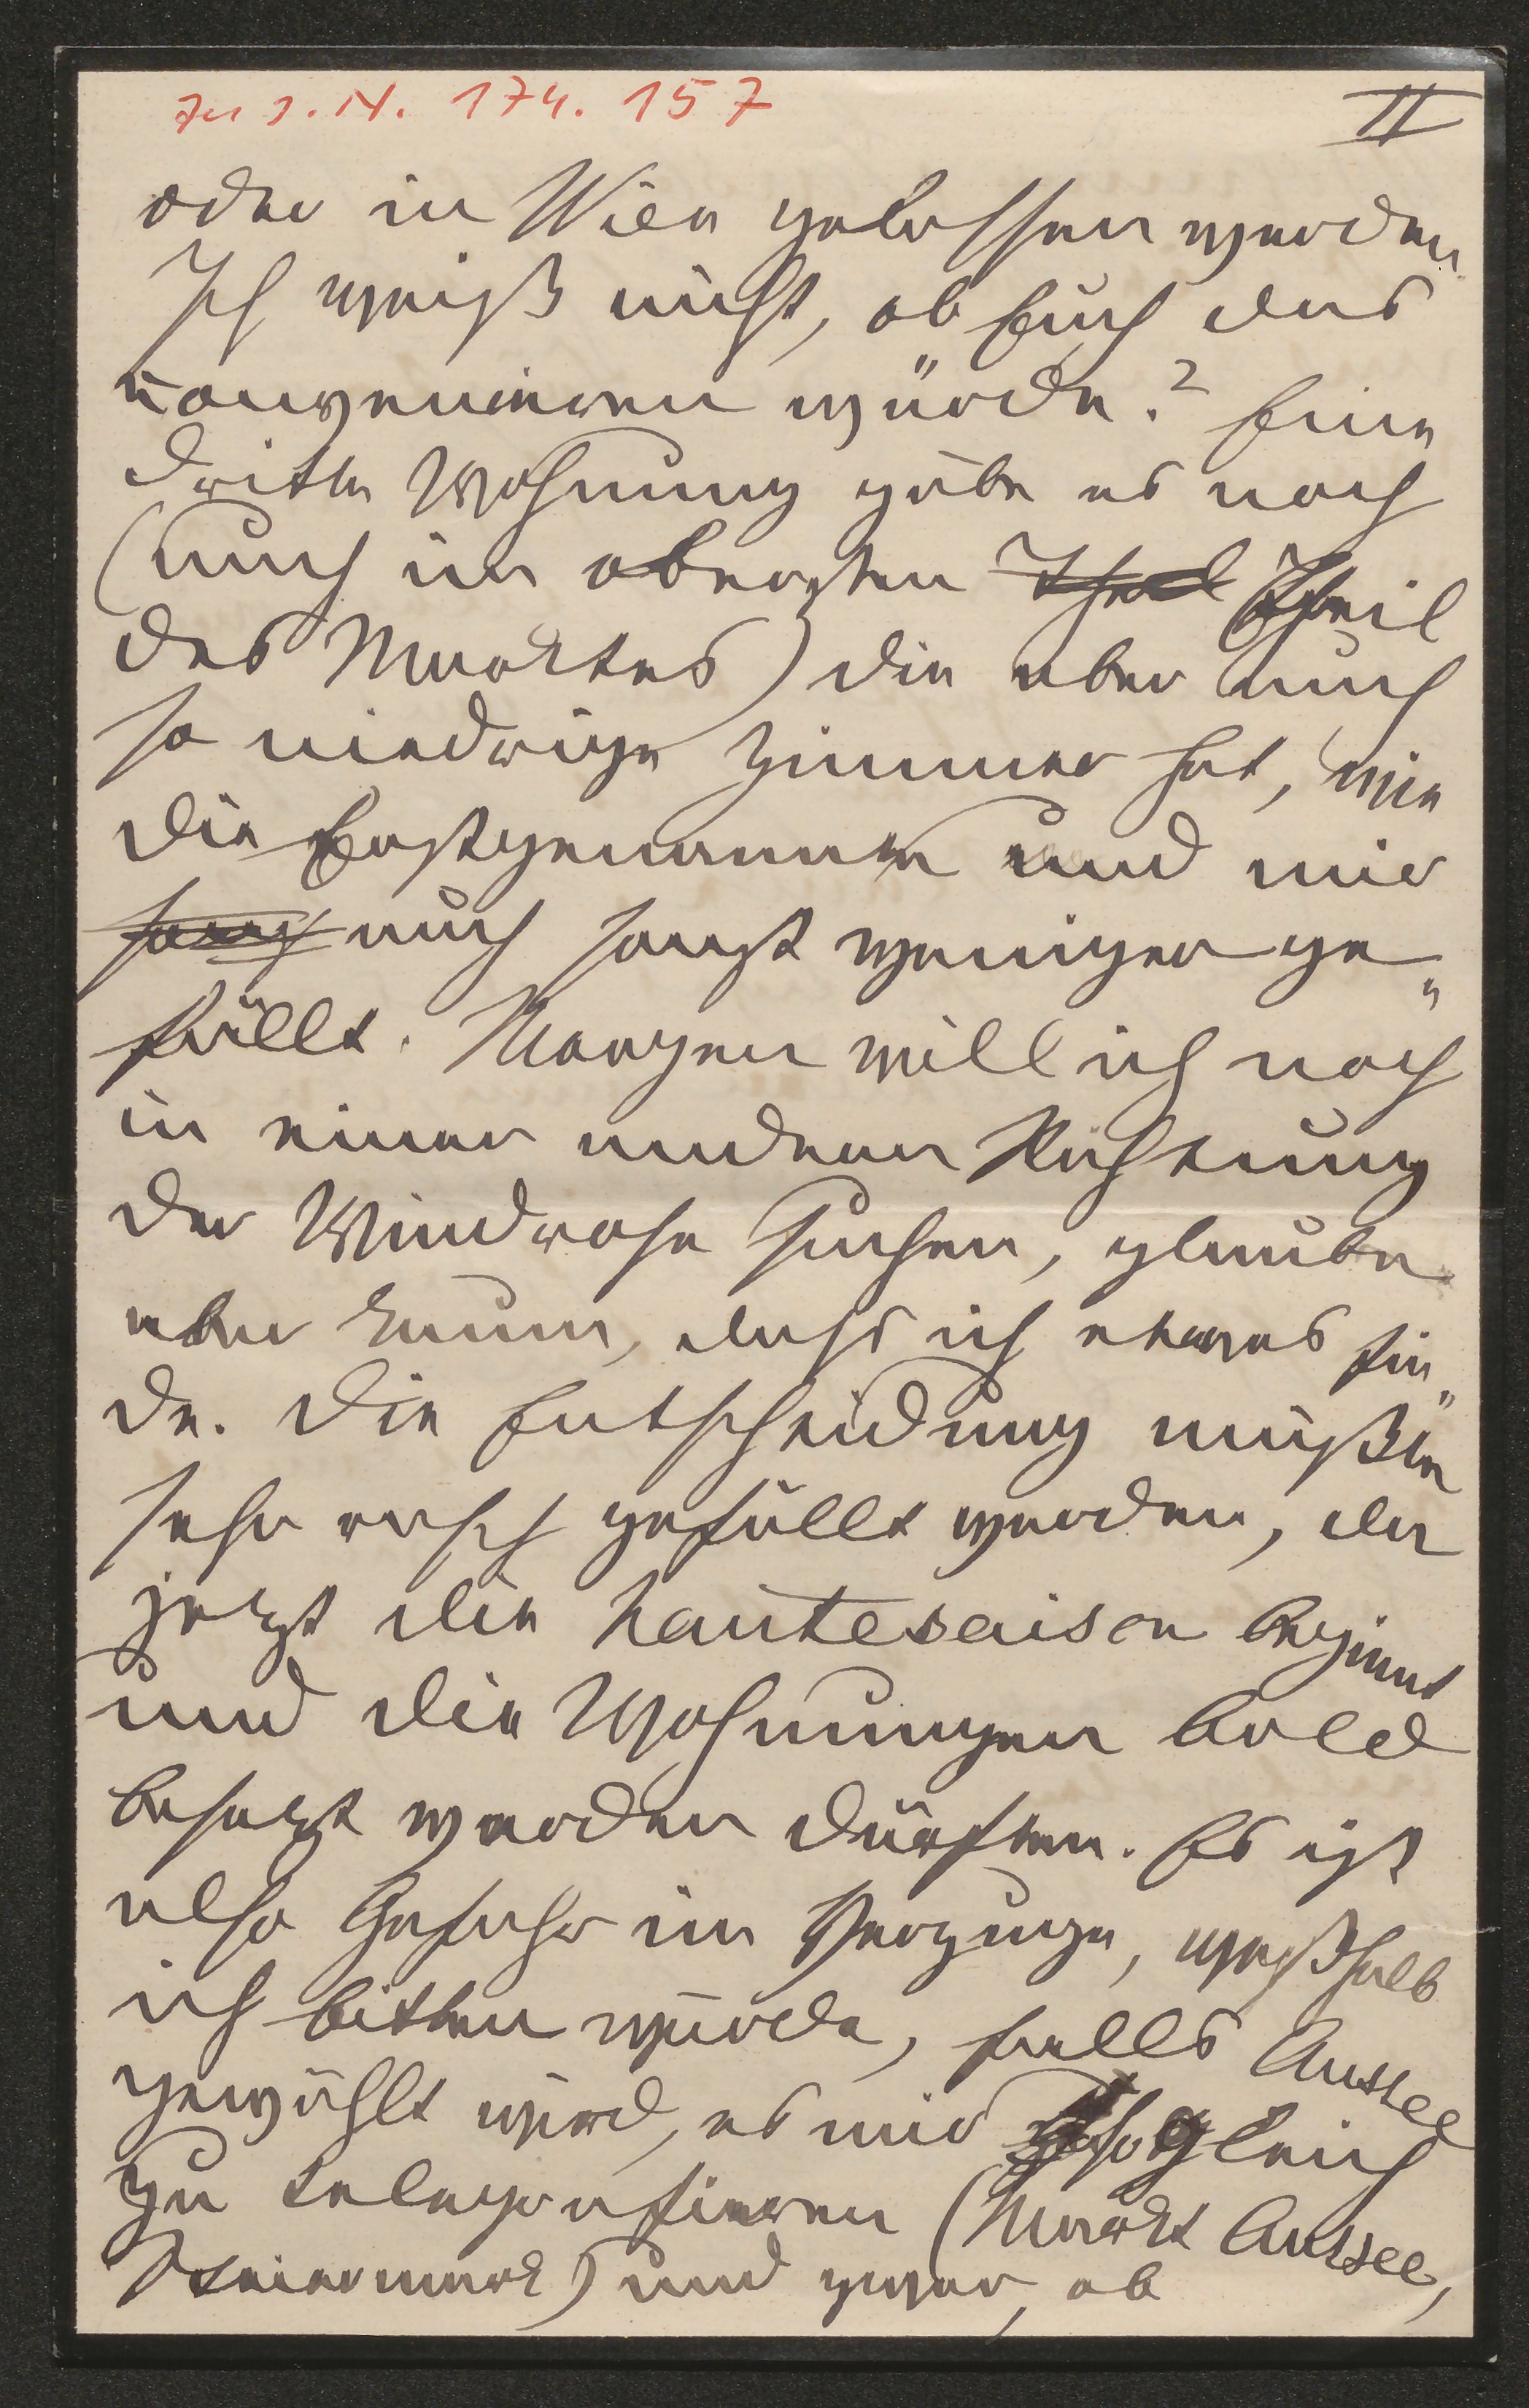 Zu J.N. 174.157
II
oder in Wien gelassen werden.
Ich weiß nicht, ob Euch das
konvenieren würde? Eine
dritte Wohnung gäbe es noch
(auch im obersten Theil Theil
des Marktes) die aber auch
so niedrige Zimmer hat, wie
die Erstgenannte und mir
auch sonst weniger ge„
fällt. Morgen will ich noch
in einer anderen Richtung
der Windrose suchen, glaube
aber kaum, dass ich etwas fin„
de. Die Entscheidung müßte
sehr rasch gefällt werden, da
jetzt die hautesaison beginnt
und die Wohnungen bald
besetzt werden dürften. Es ist
also Gefahr im Verzuge, weßhalb
ich bitten würde, falls Aussee
gewählt wird, es mir sogleich
zu telegrafieren (Markt Aussee,
Steiermark) und zwar, ob